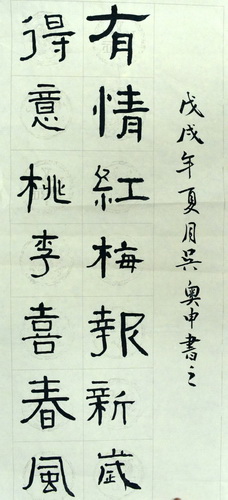 戊戌年夏月吳奧申書之
有情紅梅報新歲
得意桃李喜春風